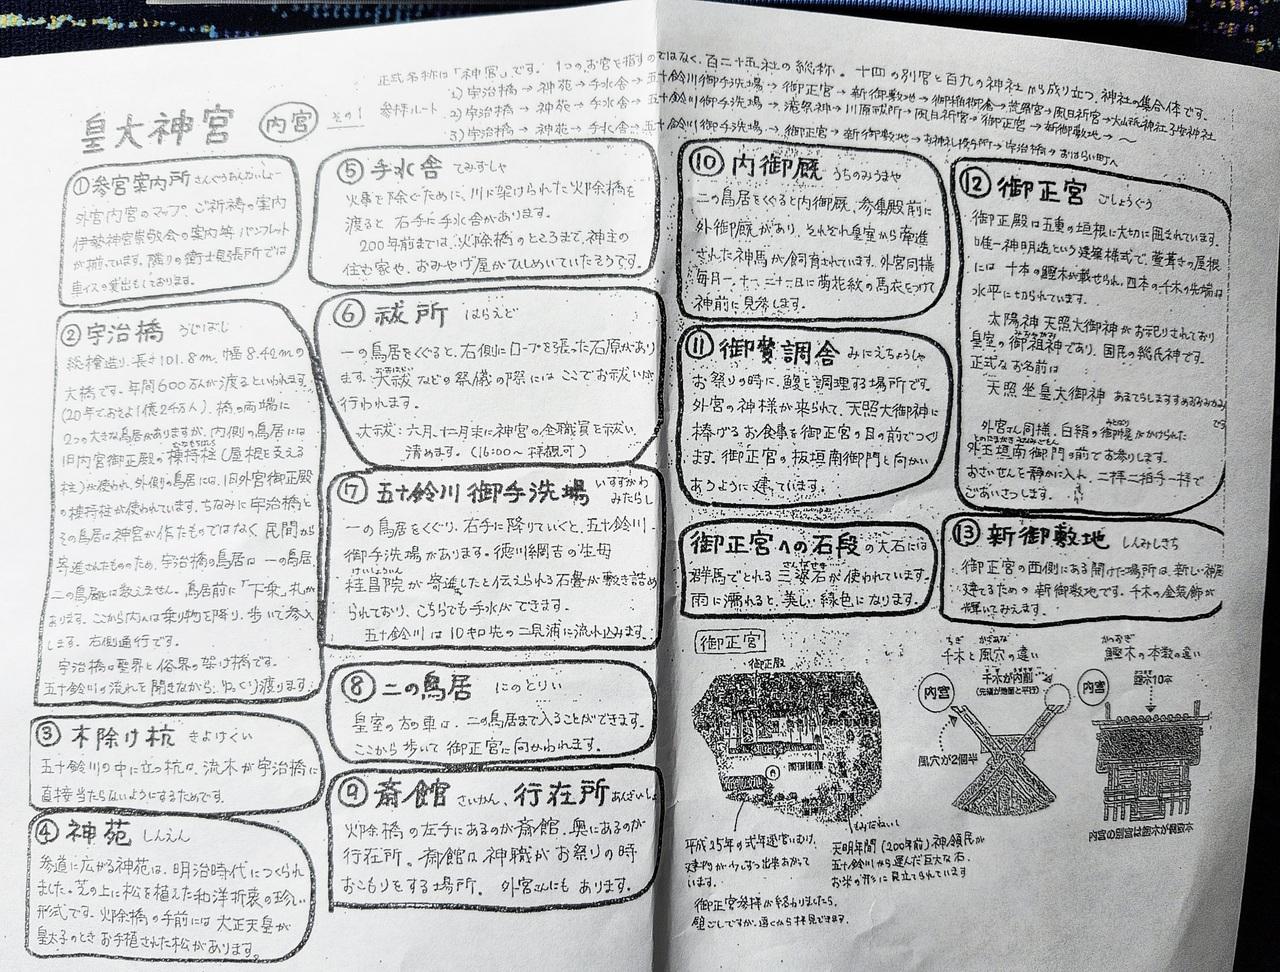 正式名称は「神宮」です。1つのお宮を指すのではなく、百二十五社の総称。十四の別宮と百九の神社から成り立つ、神社の集合体です。
参拝ルート
1)宇治橋→神苑→手水舎→五十鈴川御手洗場→御正宮→新御敷地→御稲御倉→荒祭宮→風日祈宮→大山祇神社子安神社
2)宇治橋→神苑→手水舎→五十鈴川御手洗場→滝祭神→川原祓所→風日祈宮→御正宮→新御敷地→〜
3)宇治橋→神苑→手水舎→五十鈴川御手洗場→御正宮→新御敷地→お神札授与所→宇治橋→おはらい町へ
皇大神宮 内宮 その1
①参宮案内所 さんぐうあんないしょ
外宮内宮のマップ、ご祈祷の案内
伊勢神宮崇敬会の案内等パンフレット
が揃っています。隣りの衛士見張所では
車イスの貸出もしております。
②宇治橋 うじばし
総檜造り、長さ101.8m、幅8.42mの
大橋です。年間600万人が渡るといわれます。
(20年でおよそ1億2千万人)、橋の両端に
2つの大きな鳥居がありますが、内側の鳥居には
旧内宮御正殿の棟持柱(屋根を支える
むなもちばしら
柱)が使われ、外側の鳥居には、旧外宮御正殿
の棟持柱が使われています。ちなみに宇治橋と
その鳥居は神宮が作たものではなく、民間から
寄進されたものため、宇治橋の鳥居は一の鳥居、
二の鳥居とは数えません。鳥居前に「下乗」札が
あります。ここから内へは乗り物を降り、歩いて参入
します。右側通行です。
宇治橋は聖界と俗界の架け橋です。
五十鈴川の流れを聞きながら、ゆっくり渡ります。
③木除け杭 きよけくい
五十鈴川の中に立つ杭は、流木が宇治橋に
直接当たらないようにするためです。
④神苑 しんえん
参道に広がる神苑は、明治時代につくられ
ました。芝の上に松を植えた和洋折衷の珍しい
形式です。火除橋の手前には大正天皇が
皇太子のときお手植された松があります。
⑤手水舎 てみずしゃ
火事を除ぐために、川に架けられた火除橋を
渡ると右手に手水舎があります。
200年前までは、火除橋のところまで、神主の
住む家や、おみやげ屋がひしめいていたそうです。
⑥祓所 はらえど
一の鳥居をくぐると、右側にロープを張った石原があり
ます。大祓などの祭儀の際にはここでお祓いが
行われます。
大祓:六月、十二月末に神宮の全職員を祓い
清めます。(16:00〜拝観可)
⑦五十鈴川御手洗場 いすずがわ
みたらし
一の鳥居をくぐり、右手に降りていくと、五十鈴川
御手洗場があります。徳川綱吉の生母
けいしょういん
桂昌院が寄進したと伝えられる石畳が敷き詰め
られており、こちらでも手水ができます。
五十鈴川は10キロ先の二見浦に流れ込みます。
⑧二の鳥居 にのとりい
皇室の方の車は、二の鳥居まで入ることができます。
ここから歩いて御正宮に向かわれます。
⑨斎館 さいかん、行在所 あんざいしょ
火除橋の左手にあるのが斎館、奥にあるのが
行在所。斎館は神職がお祭りの時
おこもりをする場所。外宮さんにもあります。
⑩内御厩 うちのみうまや
二の鳥居をくぐると内御厩、参集殿前に
外御厩があり、それぞれ皇室から牽進
された神馬が飼育されています。外宮同様
毎月一、十一、二十一日に菊花紋の馬衣をつけて
神前に見参します。
⑪御贄調舎 みにえちょうしゃ
お祭りの時に、鰒を調理する場所です。
外宮の神様が来られて、天照大御神に
捧げるお食事を御正宮の目の前でつくり
ます。御正宮の板垣南御門と向かい
あうように建ています。
御正宮への石段の大石には
さんばせき
群馬でとれる三波石が使われています。
雨に濡れると、美しい緑色になります。
⑫御正宮 ごしょうぐう
御正殿は五重の垣根に大切に囲まれています。
唯一神明造という建築様式で、萱葺きの屋根
には十本の鰹木が載せられ、四本の千木の先端は
水平に切られています。
太陽神天照大御神がお祀りされており
皇室の御祖神であり、国民の総氏神です。
正式なお名前は
天照坐皇大御神 あまてらしますすめおおみかみ
です
外宮さん同様、白絹の御幌がかけられた
みとばり
とのたまがきみなみごもん
外玉垣南御門の前でお参りします。
おさいせんを静かに入れ、二拝二拍手一拝で
ごあいさつします。
⑬新御敷地 しんみしきち
御正宮の西側にある開けた場所は、新しい神居
建てるための新御敷地です。千木の金装飾が
輝いてみえます。
御正宮
御正殿
平成25年の式年遷宮にむけ、
建物が少しずつ出来あがって
います。
御正宮参拝が終わりましたら、
壁ごしですが、遠くから拝見できます。
もみだねいし
天明年間(200年前)神領民が
五十鈴川から運んだ巨大な石。
お米の形に見立てられています
ちぎ かざあな
千木と風穴の違い
内宮
千木が内削
(先端が地面と平行)
風穴が2個半
かつおぎ
鰹木の本数の違い
内宮
鰹木10本
内宮の別宮は鰹木が偶数本